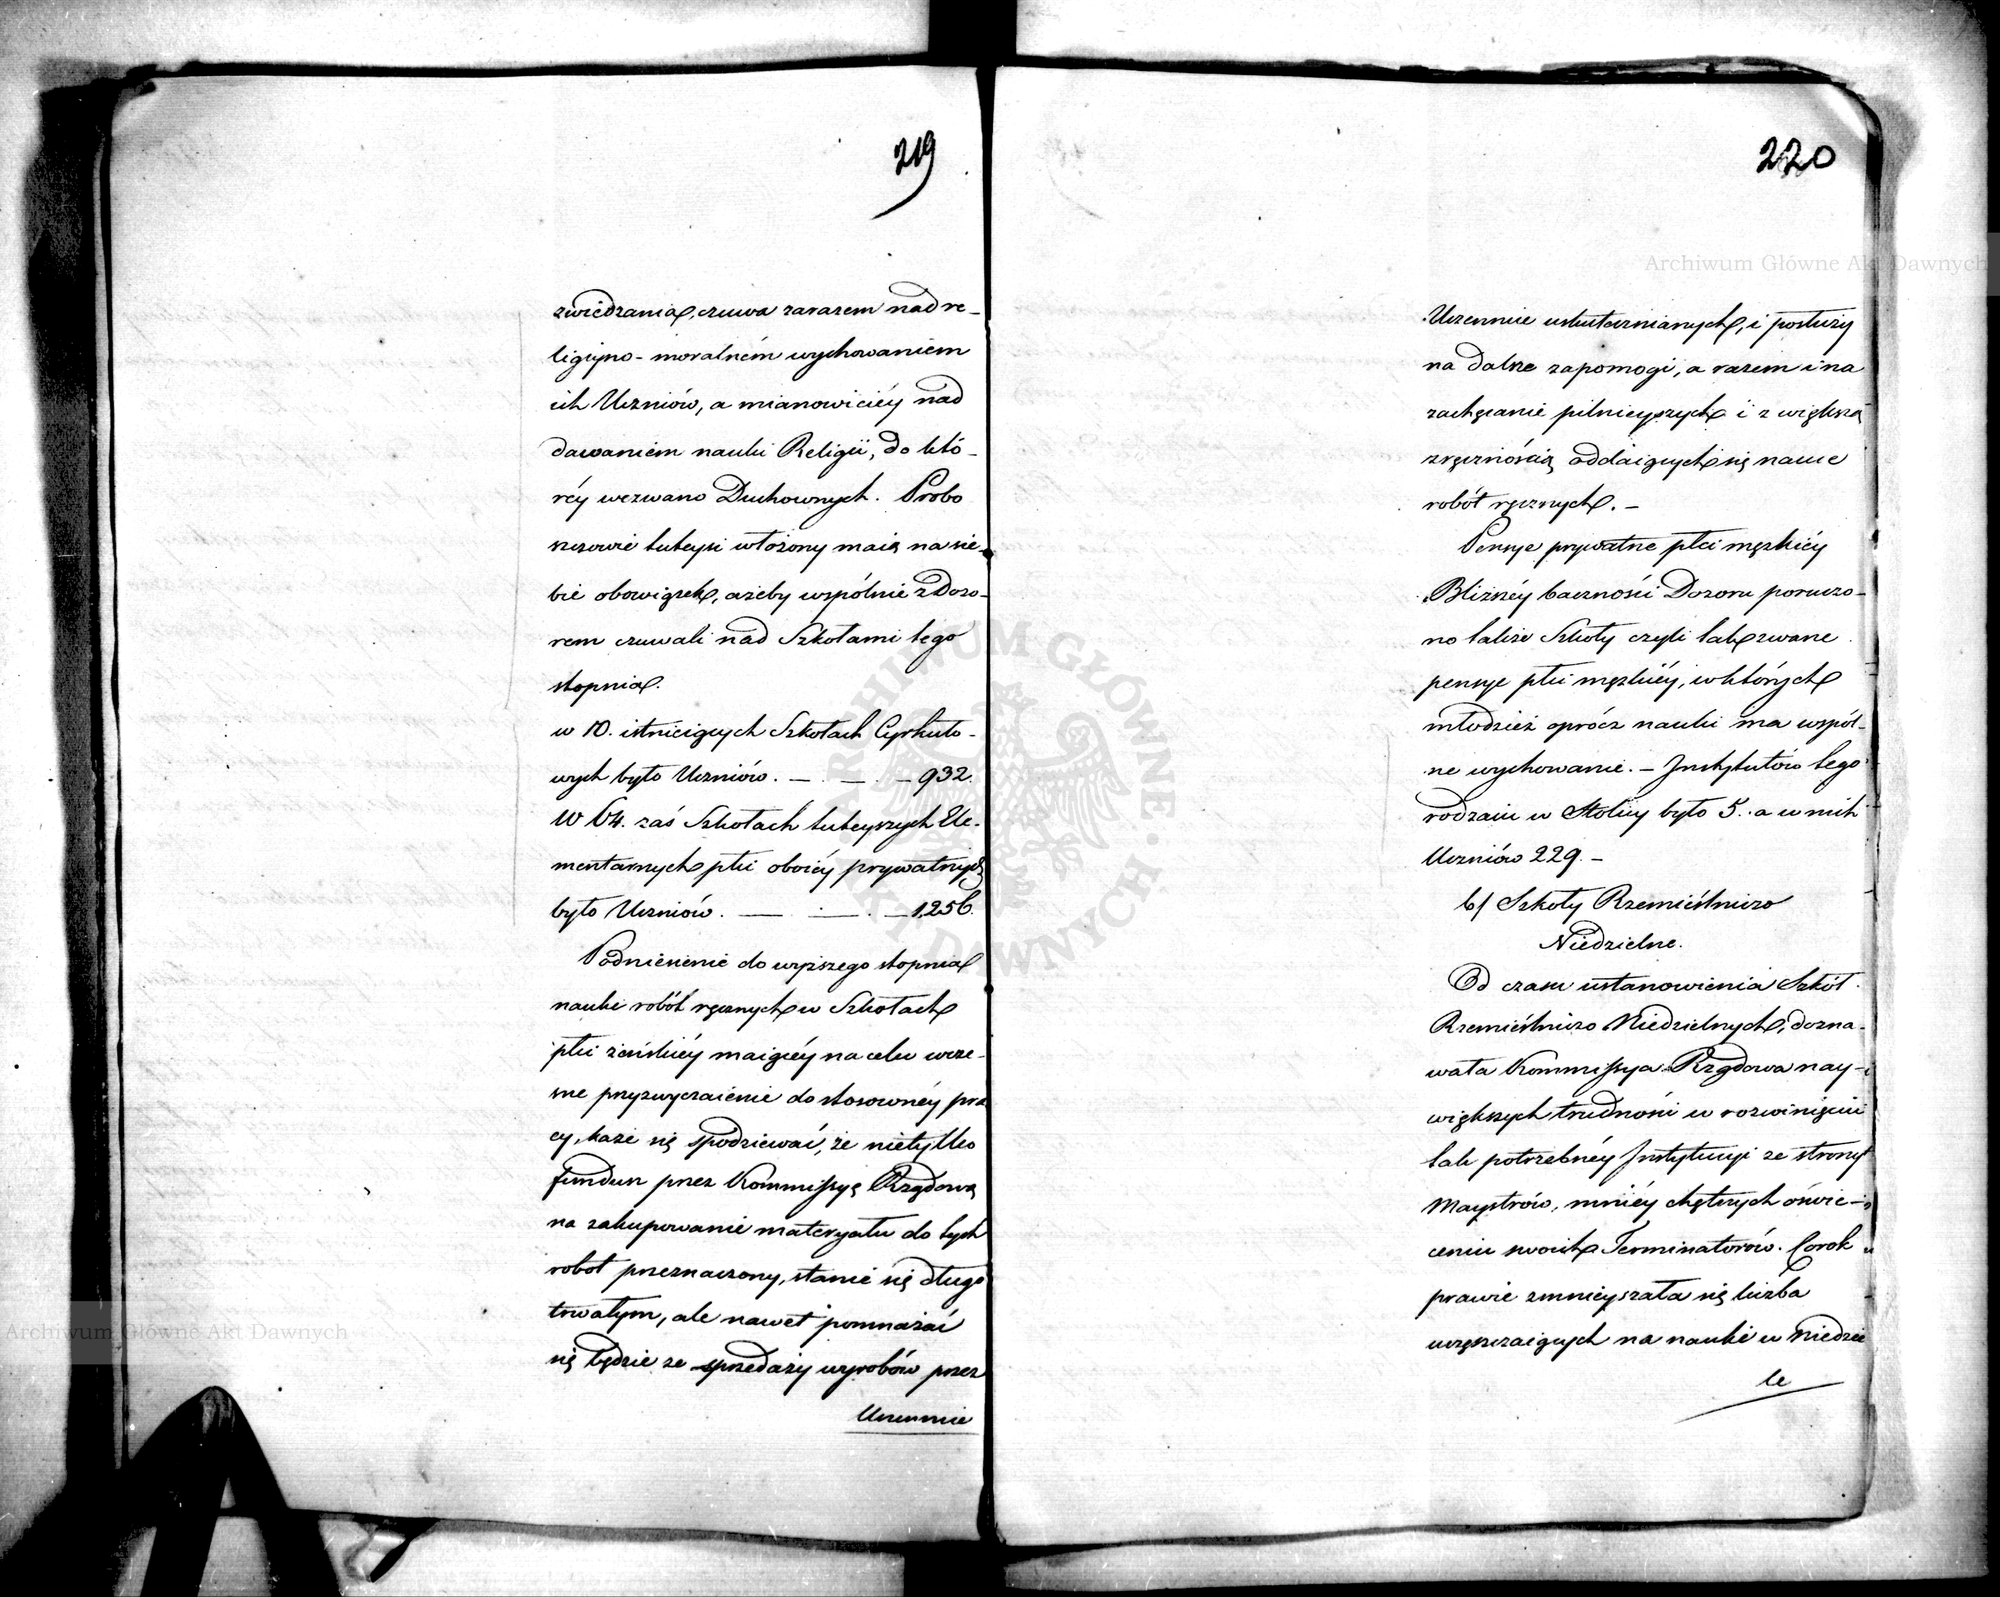 219
zwiedzania, czuwa zarazem nad re-
ligijno-moralném wychowaniem
ich Uczniów, a mianowiciéy nad
dawaniem nauki Religii, do któ-
réy wezwano Duchownych. Probo
szczowie tuteysi włożony maią na sie-
bie obowiązek, ażeby wspólnie z Dozo-
rem czuwali nad Szkołami tego
stopnia.
w 10. istnieiących Szkołach Cyrkuło-
wych było Uczniów. — . — . — 932.
W 64. zaś Szkołach tuteyszych Ele-
mentarnych płci oboiéy prywatnych
było Uczniów. — . — . — 1,256.
Podniesienie do wyższego stopnia
nauki robót ręcznych w Szkołach
płci żeńskiéy maiącéy na celu wcze-
sne przyzwyczaienie do stosownéy pra
cy, każe się spodziewać, że nietylko
fundusz przez Kommissyę Rządową
na zakupowanie materyału do tych
robot przeznaczony, stanie się długo
trwałym, ale nawet pomnażać
się będzie ze sprzedaży wyrobów przez
Uczennice
220
Uczennice uskutecznianych, i posłuży
na dalsze zapomogi, a razem i na
zachęcanie pilnieyszych i z większą
zręcznością oddaiących się nauce
robót ręcznych. –
Pensye prywatne płci męzkiéy
Bliższéy baczności Dozoru poruczo-
no także Szkoły czyli tak zwane
pensye płci męzkiéy, w których
młodzież oprócz nauki ma wspól-
ne wychowanie. – Instytutów tego
rodzaiu w Stolicy było 5. a w nich
Uczniów 229. –
b/ Szkoły Rzemieślniczo
Niedzielne.
Od czasu ustanowienia Szkół
Rzemieślniczo Niedzielnych, dozna-
wała Kommissya Rządowa nay-
większych trudności w rozwinięciu
tak potrzebnéy Instytucyi ze strony
Maystrów, mniéy chętnych oświe-
ceniu swoich Terminatorów. Corok
prawie zmnieyszała się liczba
uczęszczaiących na nauki w Niedzie
le
Archiwum Główne Akt Dawnych
Archiwum Główne Akt Dawnych
ARCHIWUM GŁÓWNE AKT DAWNYCH